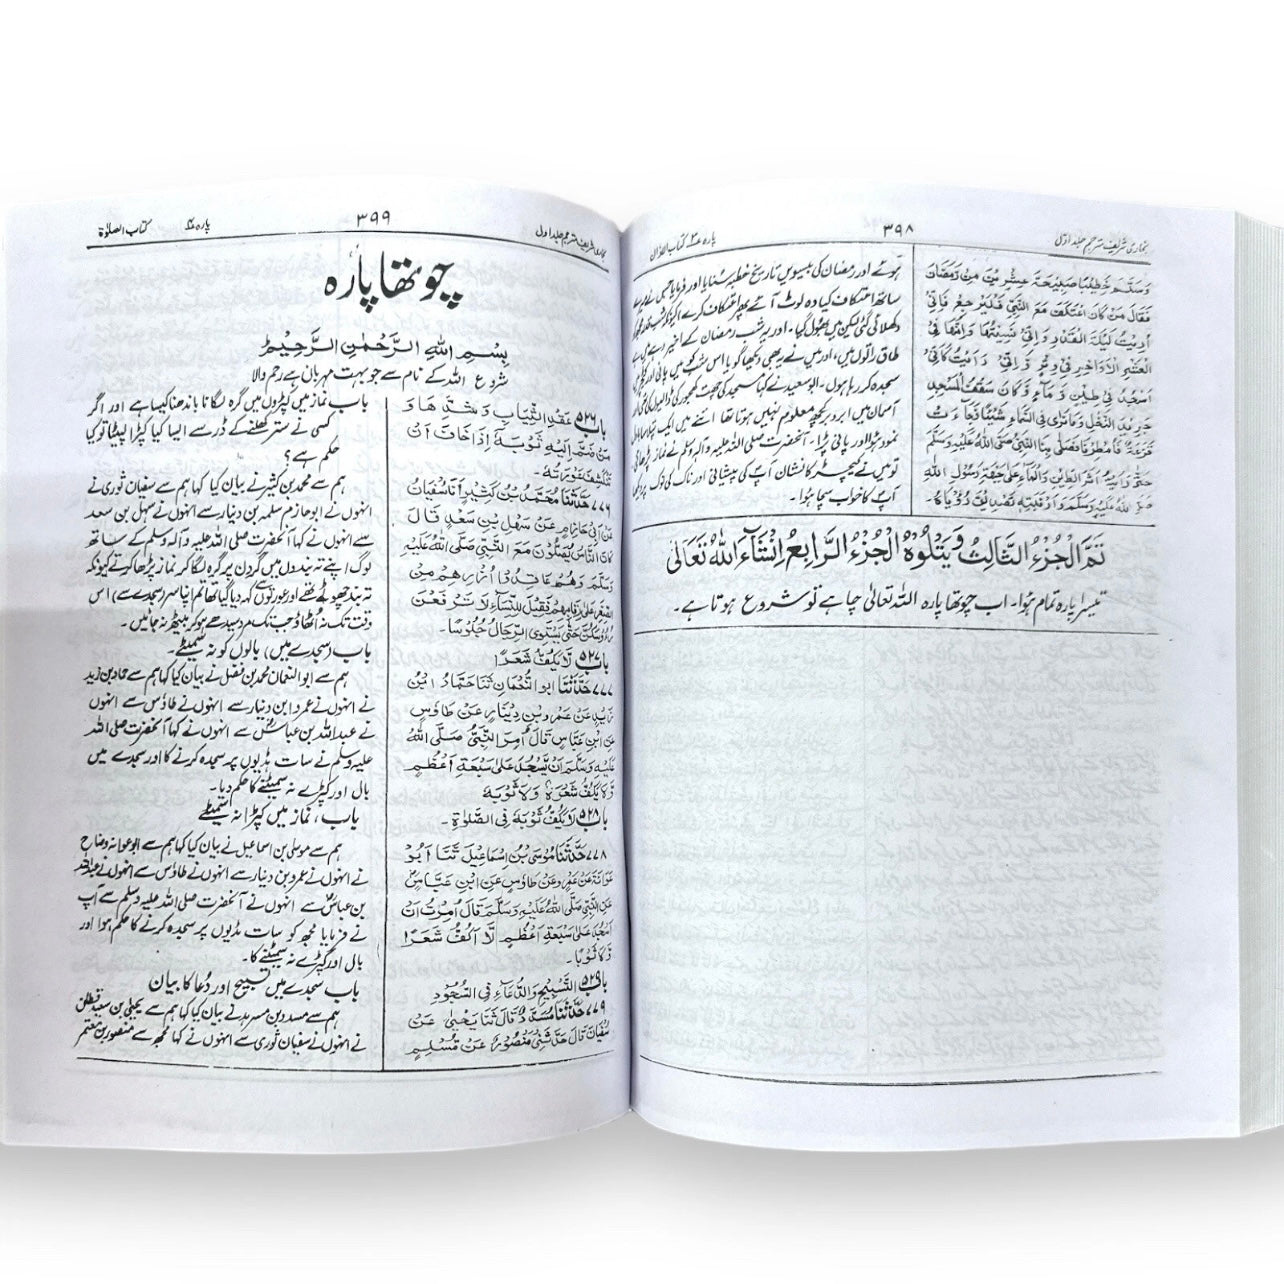 بخاری شریف مترجم جلد اوّل
۳۹۸
پارہ ۳ کتاب الاذان
وَسَلَّمَ خَطِيْبًا صَبِيْحَةَ عِشْرِيْنَ مِنْ رَمَضَانَ
فَقَالَ مَنْ كَانَ اعْتَكَفَ مَعَ النَّبِيِّ فَلْيَرْجِعْ فَاِنِّيْ
اُرِيْتُ لَيْلَةَ الْقَدْرِ وَاِنِّيْ نَسِيْتُهَا وَاِنَّهَا فِي
الْعَشْرِ الْاَوَاخِرِ فِيْ وِتْرٍ وَاِنِّيْ رَاَيْتُ كَاَنِّيْ
اَسْجُدُ فِيْ طِيْنٍ وَّمَآءٍ وَّكَانَ سَقْفُ الْمَسْجِدِ
جَرِيْدَ النَّخْلِ وَمَا نَرٰى فِي السَّمَاءِ شَيْئًا فَجَاءَتْ
قَزْعَةٌ فَاُمْطِرْنَا فَصَلّٰى بِنَا النَّبِيُّ صَلَّى اللهُ عَلَيْهِ وَسَلَّمَ
حَتّٰى رَاَيْتُ اَثَرَ الطِّيْنِ وَالْمَاءِ عَلٰى جَبْهَةِ رَسُوْلِ اللهِ
صَلَّى اللهُ عَلَيْهِ وَسَلَّمَ وَاَرْنَبَتِهٖ تَصْدِيْقَ رُؤْيَاهُ۔
ہوئے اور رمضان کی بیسویں تاریخ خطبہ سنایا اور فرمایا جس نے
ساتھ اعتکاف کیا وہ لوٹ آئے پھر اعتکاف کرے کیونکہ شب قدر
دکھلائی گئی لیکن میں بھول گیا۔ اور یہ شب رمضان کے اخیر
طاق راتوں میں، اور میں نے یہ بھی دیکھا گویا اس شب میں پانی اور کیچڑ
سجدہ کر رہا ہوں۔ ابو سعید نے کہا مسجد کی چھت کھجور کی ڈالیوں کی
آسمان میں ابر و ابر کچھ معلوم نہیں ہوتا تھا اتنے میں ایک
نمود ہوا اور پانی پڑا۔ آنحضرت صلی اللہ علیہ وآلہ وسلم نے نماز پڑھائی
تو میں نے کیچڑ کا نشان آپ کی پیشانی اور ناک کی نوک پر
آپ کا خواب سچا ہوا۔
تَمَّ الْجُزْءُ الثَّالِثُ وَيَتْلُوْهُ الْجُزْءُ الرَّابِعُ اِنْشَآءَ اللهُ تَعَالٰى
تیسرا پارہ تمام ہوا۔ اب چوتھا پارہ اللہ تعالیٰ چاہے تو شروع ہوتا ہے۔
بخاری شریف مترجم جلد اول
۳۹۹
پارہ ۴
کتاب الصلوٰۃ
چوتھا پارہ
بِسْمِ اللهِ الرَّحْمٰنِ الرَّحِيْمِ
شروع اللہ کے نام سے جو بہت مہربان ہے رحم والا
باب ۵۲۶ عَقْدِ الثِّيَابِ وَشَدِّهَا وَ
مَنْ ضَمَّ اِلَيْهِ ثَوْبَهٗ اِذَا خَافَ اَنْ
تَنْكَشِفَ عَوْرَتُهٗ۔
۷۷۶ حَدَّثَنَا مُحَمَّدُ بْنُ كَثِيْرٍ اَنَا سُفْيَانُ
عَنْ اَبِيْ حَازِمٍ عَنْ سَهْلِ بْنِ سَعْدٍ قَالَ
كَانَ النَّاسُ يُصَلُّوْنَ مَعَ النَّبِيِّ صَلَّى اللهُ عَلَيْهِ
وَسَلَّمَ وَهُمْ عَاقِدُوْا اُزُرِهِمْ مِنَ
الصِّغَرِ عَلٰى رِقَابِهِمْ فَقِيْلَ لِلنِّسَاءِ لَا تَرْفَعْنَ
رُءُوْسَكُنَّ حَتّٰى يَسْتَوِيَ الرِّجَالُ جُلُوْسًا۔
باب ۵۲۷ لَا يَكُفُّ شَعَرًا
۷۷۷ حَدَّثَنَا اَبُو النُّعْمَانِ ثَنَا حَمَّادُ ابْنُ
زَيْدٍ عَنْ عَمْرِو بْنِ دِيْنَارٍ عَنْ طَاوُسٍ
عَنِ ابْنِ عَبَّاسٍ قَالَ اُمِرَ النَّبِيُّ صَلَّى اللهُ
عَلَيْهِ وَسَلَّمَ اَنْ يَّسْجُدَ عَلٰى سَبْعَةِ اَعْظُمٍ
وَّلَا يَكُفَّ شَعْرَهٗ وَلَا ثَوْبَهٗ
باب ۵۲۸ لَا يَكُفُّ ثَوْبَهٗ فِي الصَّلٰوةِ۔
۷۷۸ حَدَّثَنَا مُوْسَى بْنُ اِسْمَاعِيْلَ ثَنَا اَبُوْ
عَوَانَةَ عَنْ عَمْرٍو عَنْ طَاوُسٍ عَنِ ابْنِ عَبَّاسٍ
عَنِ النَّبِيِّ صَلَّى اللهُ عَلَيْهِ وَسَلَّمَ قَالَ اُمِرْتُ اَنْ
اَسْجُدَ عَلٰى سَبْعَةِ اَعْظُمٍ لَّا اَكُفَّ شَعَرًا
وَّلَا ثَوْبًا۔
باب ۵۲۹ التَّسْبِيْحِ وَالدُّعَاءِ فِي السُّجُوْدِ
۷۷۹ حَدَّثَنَا مُسَدَّدٌ قَالَ ثَنَا يَحْيٰى عَنْ
سُفْيَانَ قَالَ حَدَّثَنِيْ مَنْصُوْرٌ عَنْ مُسْلِمٍ
باب نماز میں کپڑوں میں گرہ لگانا باندھنا کیسا ہے اور اگر
کسی نے ستر کھلنے کے ڈر سے ایسا کیا کپڑا لپیٹا تو کیا
حکم ہے؟
ہم سے محمد بن کثیر نے بیان کیا کہا ہم سے سفیان ثوری نے
انہوں نے ابو حازم سلمہ بن دینار سے انہوں نے سہل بن سعد
سے انہوں نے کہا آنحضرت صلی اللہ علیہ وآلہ وسلم کے ساتھ
لوگ اپنے تہ بندوں میں گردن پر گرہ لگا کر نماز پڑھا کرتے کیونکہ
تہ بند چھوٹے تھے اور عورتوں سے کہہ دیا گیا تھا تم اپنا سر (سجدے سے) اس
وقت تک نہ اٹھاؤ جب تک مرد سیدھے ہو کر بیٹھ نہ جائیں۔
باب (سجدے میں) بالوں کو نہ سمیٹے۔
ہم سے ابوالنعمان محمد بن فضل نے بیان کیا کہا ہم سے حماد بن زید
نے انہوں نے عمرو ابن دینار سے انہوں نے طاؤس سے انہوں
نے عبداللہ بن عباسؓ سے انہوں نے کہا آنحضرت صلی اللہ
علیہ وسلم نے سات ہڈیوں پر سجدہ کرنے کا اور سجدے میں
بال اور کپڑے نہ سمیٹنے کا حکم دیا۔
باب، نماز میں کپڑا نہ سمیٹے
ہم سے موسیٰ بن اسماعیل نے بیان کیا کہا ہم سے ابو عوانہ وضاح
نے انہوں نے عمرو بن دینار سے انہوں نے طاؤس سے انہوں نے عبداللہ
بن عباسؓ سے انہوں نے آنحضرت صلی اللہ علیہ وسلم سے آپ
نے فرمایا مجھ کو سات ہڈیوں پر سجدہ کرنے کا حکم ہوا اور
بال اور کپڑے نہ سمیٹنے کا۔
باب سجدے میں تسبیح اور دُعا کا بیان
ہم سے مسدد بن مسرہد نے بیان کیا کہا ہم سے یحییٰ بن سعید قطان
نے انہوں نے سفیان ثوری سے انہوں نے کہا مجھ سے منصور بن معتمر